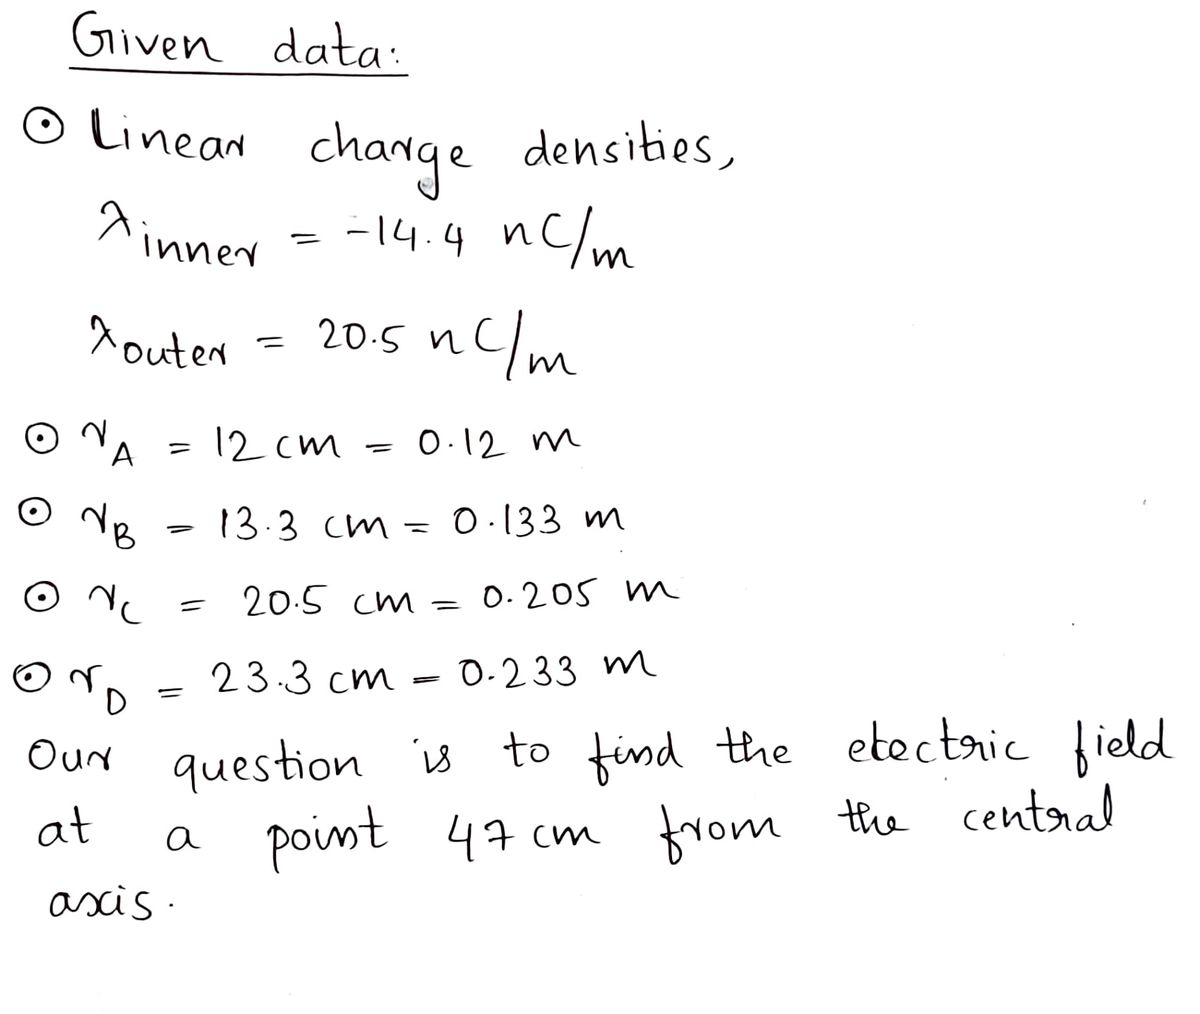 Given data:
⊙ Linear charge densities,
λinner = -14.4 nC/m
λouter = 20.5 nC/m
⊙ rA = 12 cm = 0.12 m
⊙ rB = 13.3 cm = 0.133 m
⊙ rC = 20.5 cm = 0.205 m
⊙ rD = 23.3 cm = 0.233 m
Our question is to find the electric field
at a point 47 cm from the central
axis.